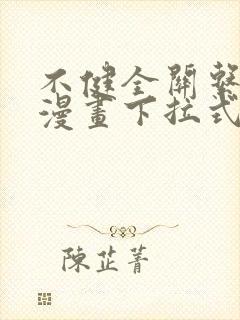 不健全關繫
漫畫下拉式
陳芷菁